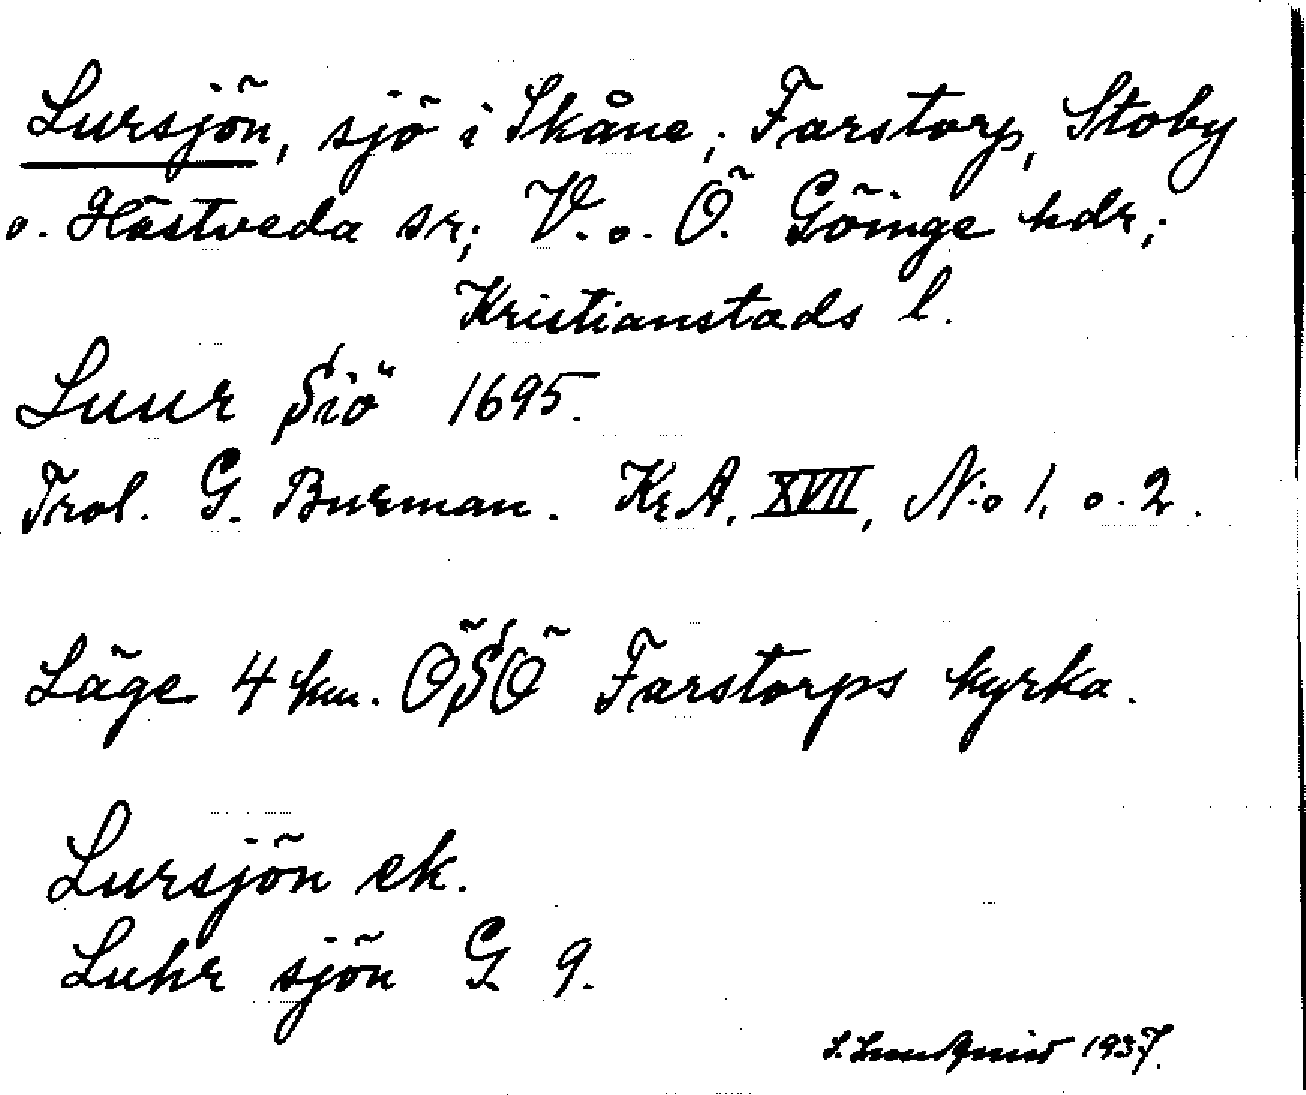 Lursjön, sjö i Skåne; Farstorp, Stoby
o. Hästveda sr; V. o. Ö. Göinge hdr;
Kristianstads l.
Luur Siö 1695.
Trol. G. Burman. KrA. XVII, N:o 1. o. 2.
Läge 4 km. ÖSÖ Farstorps kyrka.
Lursjön ek.
Luhr sjön G 9.
S. Lundquist 1937.